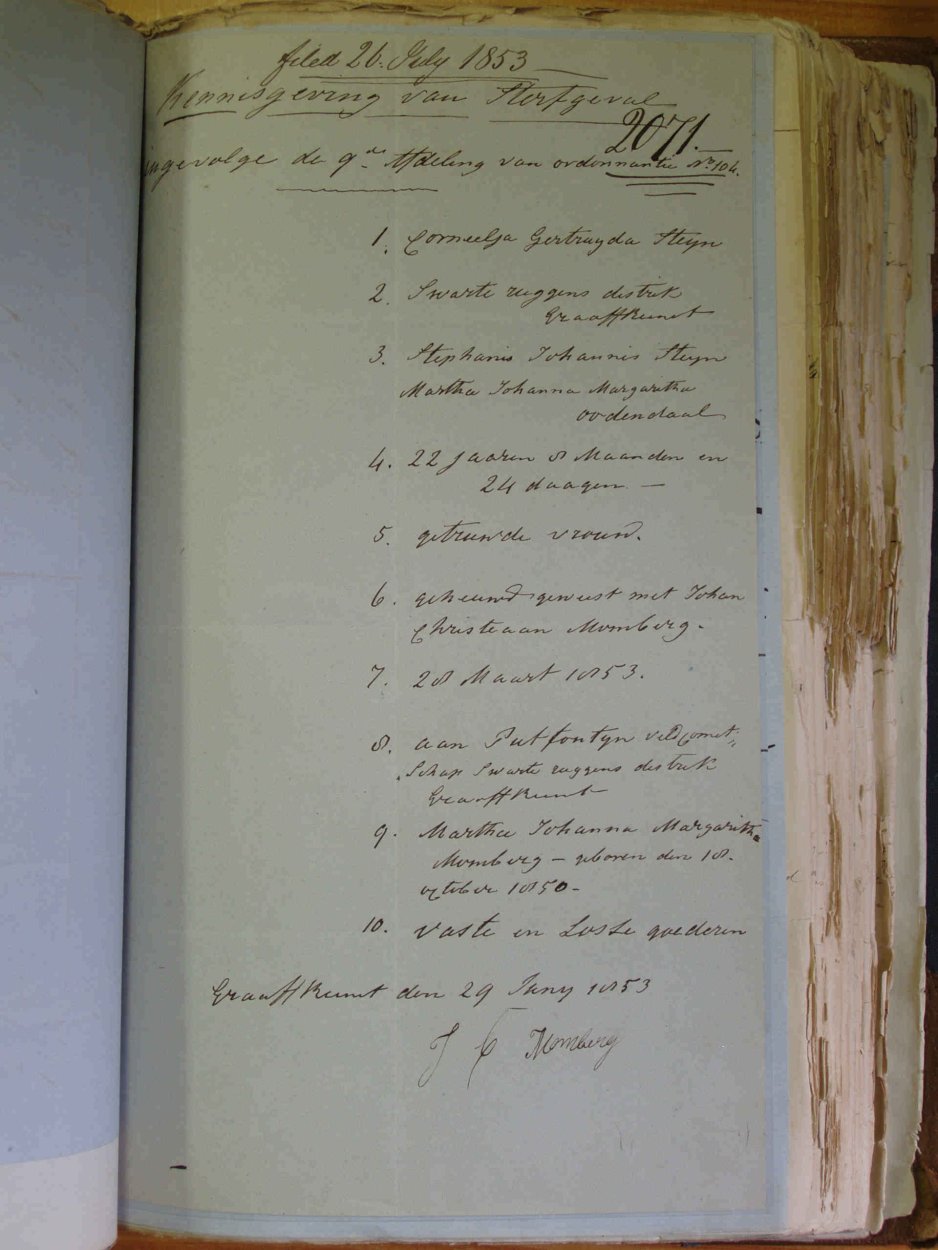 filed 26. July 1853
Kennisgeving van Sterfgeval
2071.
ingevolge de 9de Afdeling van ordonnantie No. 104.
1. Corneelja Gertruyda Steyn
2. Swarte ruggens distrik
Graaff Reinet
3. Stephanis Johannis Steyn
Martha Johanna Margaritha
oodendaal
4. 22 Jaaren 8 Maanden en
24 daagen. —
5. getruwde vrouw.
6. getreuwd geweest met Johan
Christeaan Momberg.
7. 28 Maart 1853.
8. aan Putfontyn veldcornet,,
Schap Swarte ruggens distrik
Graaff Reinet
9. Martha Johanna Margaritha
Momberg – geboren den 18.
october 1850 –
10. Vaste en Losse goederen
Graaff Reinet den 29 Juny 1853
J C Momberg